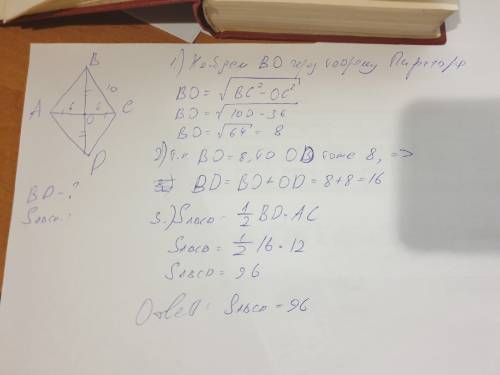 B
10
A 6 6 C
O
D
BD-?
Sавсд-?
1) Найдем BO через теорему Пифагора
BO = √BC² - OC²
BO = √100 - 36
BO = √64 = 8
2) т.к BO = 8, то OD тоже 8, =>
BD = BO + OD = 8 + 8 = 16
3.) Sавсд = 1/2 BD · AC
Sавсд = 1/2 16 · 12
Sавсд = 96
Ответ: Sавсд = 96